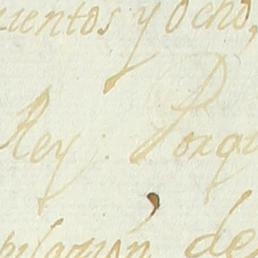 uentos y ocho,
Rey: Porqu
pilazion de